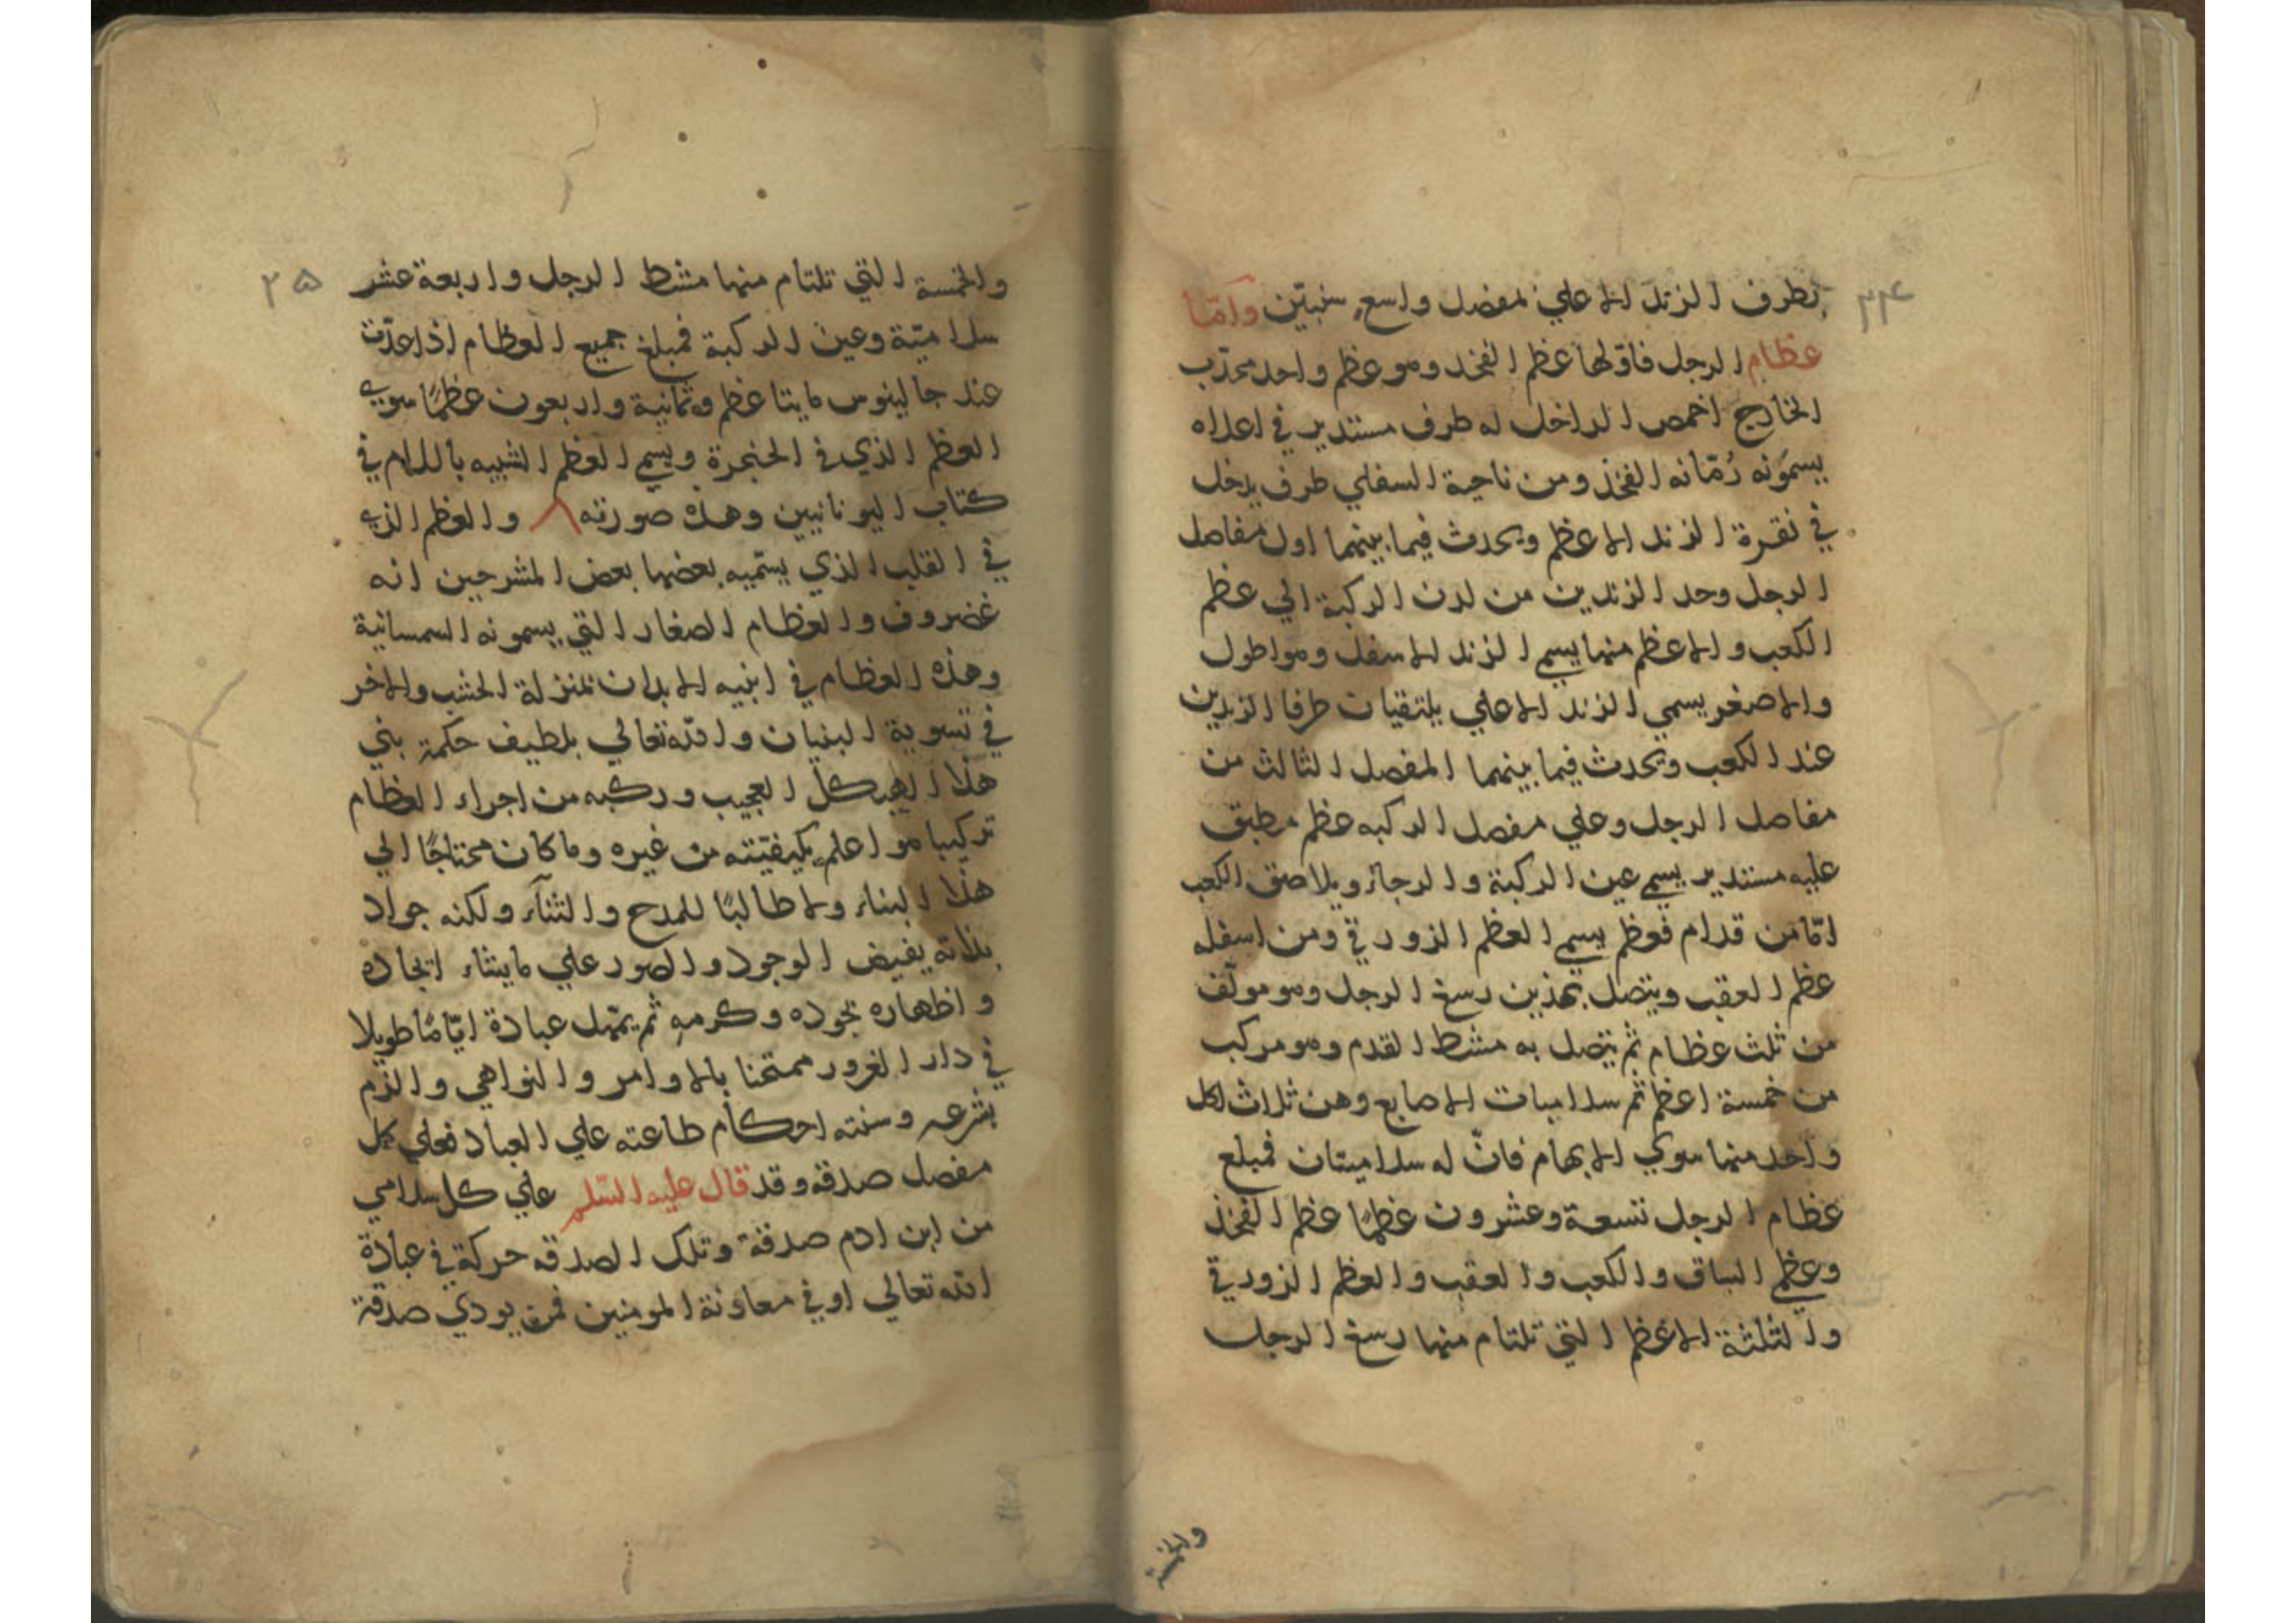 ٢٤
بطرف الزند الاعلي لمفصل واسع سنبيّن وامّا
عظام الرجل فاوّلها عظم الفخد وهو عظم واحد محدّب
الخارج اخمص الداخل له طرف مستدير في اعلاه
يسمّونه رُمّانه الفخذ ومن ناحية السفلي طرف يدخل
في نقرة الزند الاعظم ويحدث فيما بينهما اول مفاصل
الرجل وحد الزندين من لدن الركبة الي عظم
الكعب والاعظم منها يسمي الزند الاسفل وهو اطول
والاصغر يسمي الزند الاعلي يلتقيان طرفا الزندين
عند الكعب ويحدث فيما بينهما المفصل الثالث من
مفاصل الرجل وعلي مفصل الركبه عظم مطبق
عليه مستدير يسمي عين الركبة و ويلاصق الكعب
امّا من قدام فعظم يسمي العظم الزورقي ومن اسفله
عظم العقب ويتصل بهذين رسغ الرجل وهو مولّف
من ثلث عظام ثم يتصل به مشط القدم وهو مركب
من خمسة اعظم ثم سلاميات الاصابع وهن ثلاث لكل
واحد منها سوي الابهام فانّ له سلاميتان فمبلغ
عظام الرجل تسعة وعشرون عظمًا عظم الفخذ
وعظمي الساق والكعب والعقب والعظم الزورقي
والثلثة الاعظم التي تلتام منها رسغ الرجل
٢٥
والخمسة التي تلتام منها مشط الرجل واربعة عشر
سلاميّة وعين الركبة فمبلغ جميع العظام اذا عدّت
عند جالينوس مايتا عظم وثمانية واربعون عظمًا سوي
العظم الذي في الحنجرة ويسمي العظم الشبيه باللام في
كتاب اليونانيين وهذه صورته والعظم الذي
في القلب الذي يسمّيه بعضها بعض المشرحين انه
غضروف والعظام الصغار التي يسمونه السمسانية
وهذه العظام في ابنيه الابدان بمنزلة الخشب والاخر
في تسوية البنيان والله تعالي بلطيف حكمة بني
هذا الهيكل العجيب وركبه من اجزاء العظام
تركيبا هو اعلم بكيفيّته من غيره وما كان محتاجًا الي
هذا البناء ولا طالبًا للمدح والثنآء ولكنه جواد
بذاته يفيض الوجود والصور علي ما يشاء ايجاده
واظهاره بجوده وكرمه ثم يمهل عباده ايّامًا طويلا
في دار الغرور ممتحنا بالاوامر والنواهي والزم
بشرعه وسنته احكام طاعته علي العباد فعلي كل
مفصل صدقة وقد قال عليه السّلم علي كل سلامي
من ابن ادم صدقة وتلك الصدقه حركة في عبادة
الله تعالي او في معاونة المومنين فمن يودي صدقة